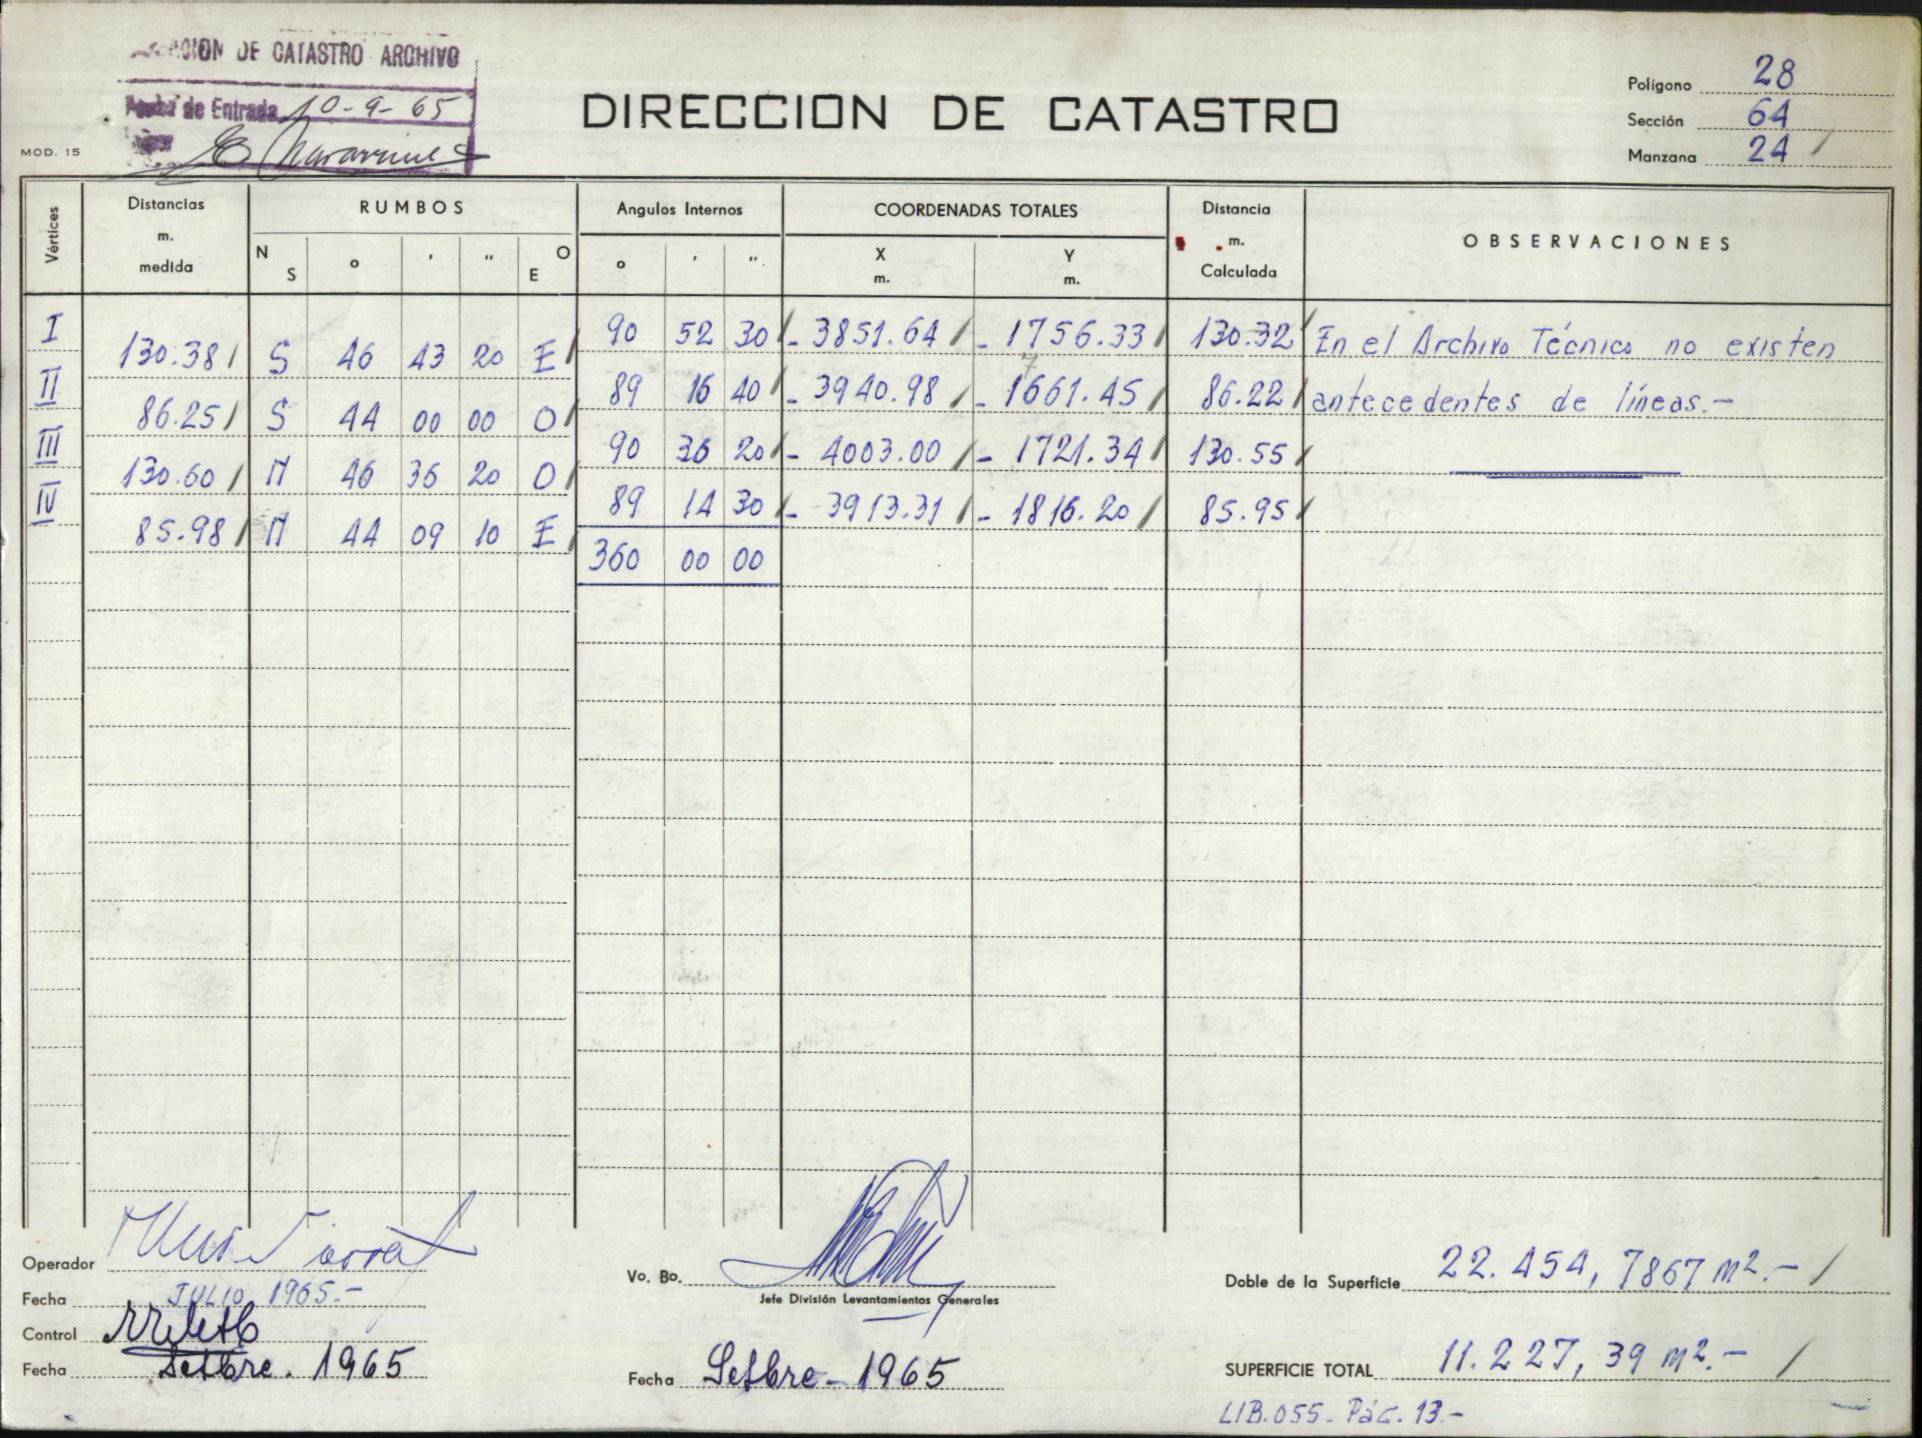 DE CATASTRO ARCHIVO
de Entrada 10-9-65
MOD. 15
DIRECCION DE CATASTRO
Polígono 28
Sección 64
Manzana 24 /
Vértices
Distancias m. medida
RUMBOS
N S ° ' " E O
Angulos Internos
° ' "
COORDENADAS TOTALES
X m. Y m.
Distancia m. Calculada
OBSERVACIONES
I 90 52 30 / - 3851.64 / - 1756.33 / 130.32 / En el Archivo Técnico no existen
130.38 / S 46 43 20 E /
7
II 89 16 40 / - 3940.98 / - 1661.45 / 86.22 / antecedentes de líneas.-
86.25 / S 44 00 00 O /
III 90 36 20 / - 4003.00 / - 1721.34 / 130.55 /
130.60 / N 46 36 20 O /
IV 89 14 30 / - 3913.31 / - 1816.20 / 85.95 /
85.98 / N 44 09 10 E /
360 00 00
Operador
Fecha JULIO 1965.-
Control
Fecha Setbre. 1965
Vo. Bo.
Jefe División Levantamientos Generales
Fecha Setbre - 1965
Doble de la Superficie 22.454,7867 m2.- /
SUPERFICIE TOTAL 11.227,39 m2.- /
LIB.055- Pág. 13.-